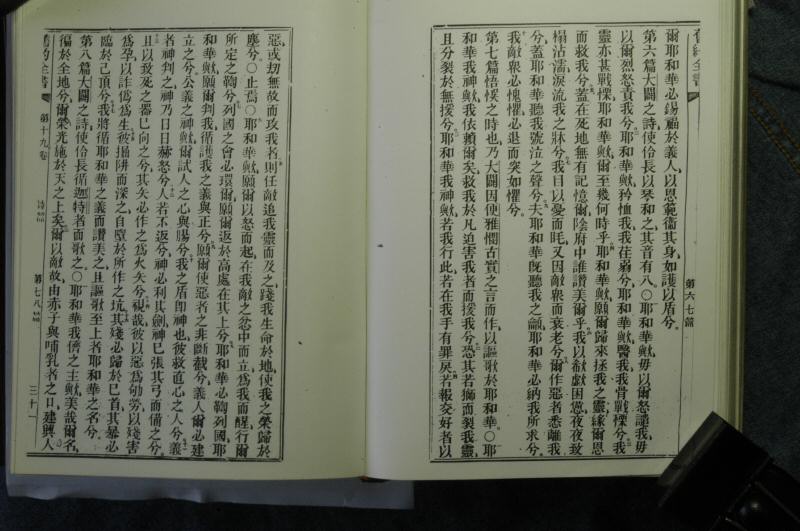 舊約全書
爾耶和華必錫福於義人以恩範衛其身如護以盾兮
第六篇大闢之詩使伶長以琴和之其音有八〇耶和華歟毋以爾怒譴我毋
以爾烈怒責我兮耶和華歟矜恤我我荏弱兮耶和華歟醫我我骨戰慄兮我
靈亦甚戰慄耶和華歟爾至幾何時乎耶和華歟願爾歸來拯我之靈緣爾恩
而救我兮蓋在死地無有記憶爾陰府中誰讚美爾乎我以欷歔困憊夜夜致
榻沾濡淚流我之牀兮我目以憂而眊又因敵衆而衰老兮爾作惡者悉離我
兮蓋耶和華聽我號泣之聲兮夫耶和華既聽我之籲耶和華必納我所求兮
我敵衆必愧懼必退而突如懼兮
第七篇悟悮之時也乃大闢因便雅憫古實之言而作以謳歌於耶和華〇耶
和華我神歟我依賴爾矣救我於凡迫害我者而援我兮恐其若獅而裂我靈
且分裂於無援兮耶和華我神歟若我行此若在我手有罪戾若報交好者以
第六七篇
惡或刼無故而攻我者則任敵追我靈而及之踐我生命於地使我之榮歸於
塵兮〇止焉〇耶和華歟願爾以怒而起在我敵之忿中而立爲我而醒行爾
所定之鞫兮列國之會必環爾願爾返於高處在其上兮耶和華必鞫列國耶
和華歟願爾判我循我之義與正兮願爾使惡者之非斷截兮義人爾必建
立之兮公義之神歟爾試人之心與腸兮我之盾卽神也彼救直心之人兮義
者神判之神乃日日赫怒兮人若不返兮神必利其劍神已張其弓而備之兮
且以致死之器已向之兮其矢必作之爲火矢兮視哉彼以惡爲劬勞以殘害
爲孕以詐僞爲生彼掘阱而深之自墮於所作之坑其殘必歸於己首其暴必
臨於己頂兮我將循耶和華之義而讚美之且謳歌至上者耶和華之名兮
第八篇大闢之詩使伶長循迦特者而歌之〇耶和華我儕之主歟美哉爾名
徧於全地兮爾榮光施於天之上矣爾以敵故由赤子與哺乳者之口建興人
舊約全書
第十九卷
詩篇
第七八篇
三十一